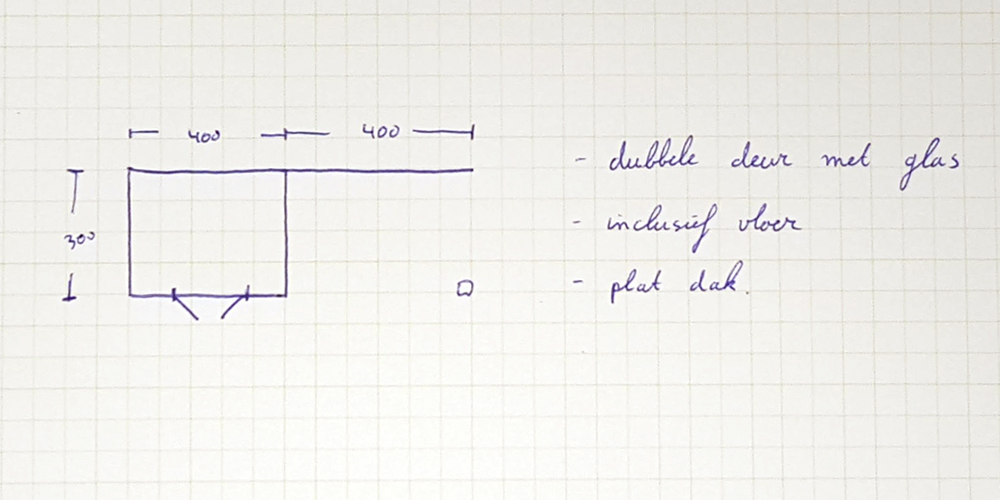 400 400
- dubbele deur met glas
300
- inclusief vloer
- plat dak.